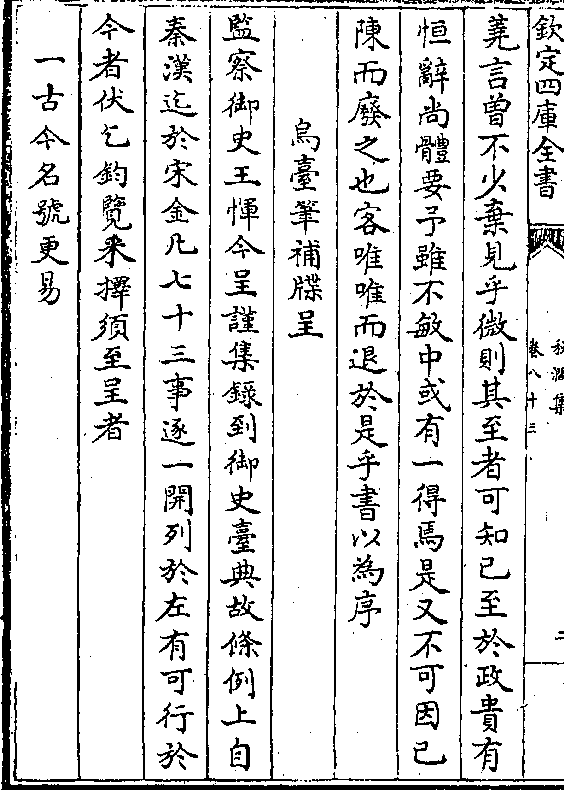 欽定四庫全書
秋澗集
卷八十三
二
蕘言曾不少棄見乎微則其至者可知已至於政貴有
恒辭尚體要予雖不敏中或有一得焉是又不可因已
陳而廢之也客唯唯而退於是乎書以為序
烏臺筆補牒呈
監察御史王惲今呈謹集錄到御史臺典故條例上自
秦漢迄於宋金凡七十三事逐一開列於左有可行於
今者伏乞鈞覽采擇須至呈者
一古今名號更易